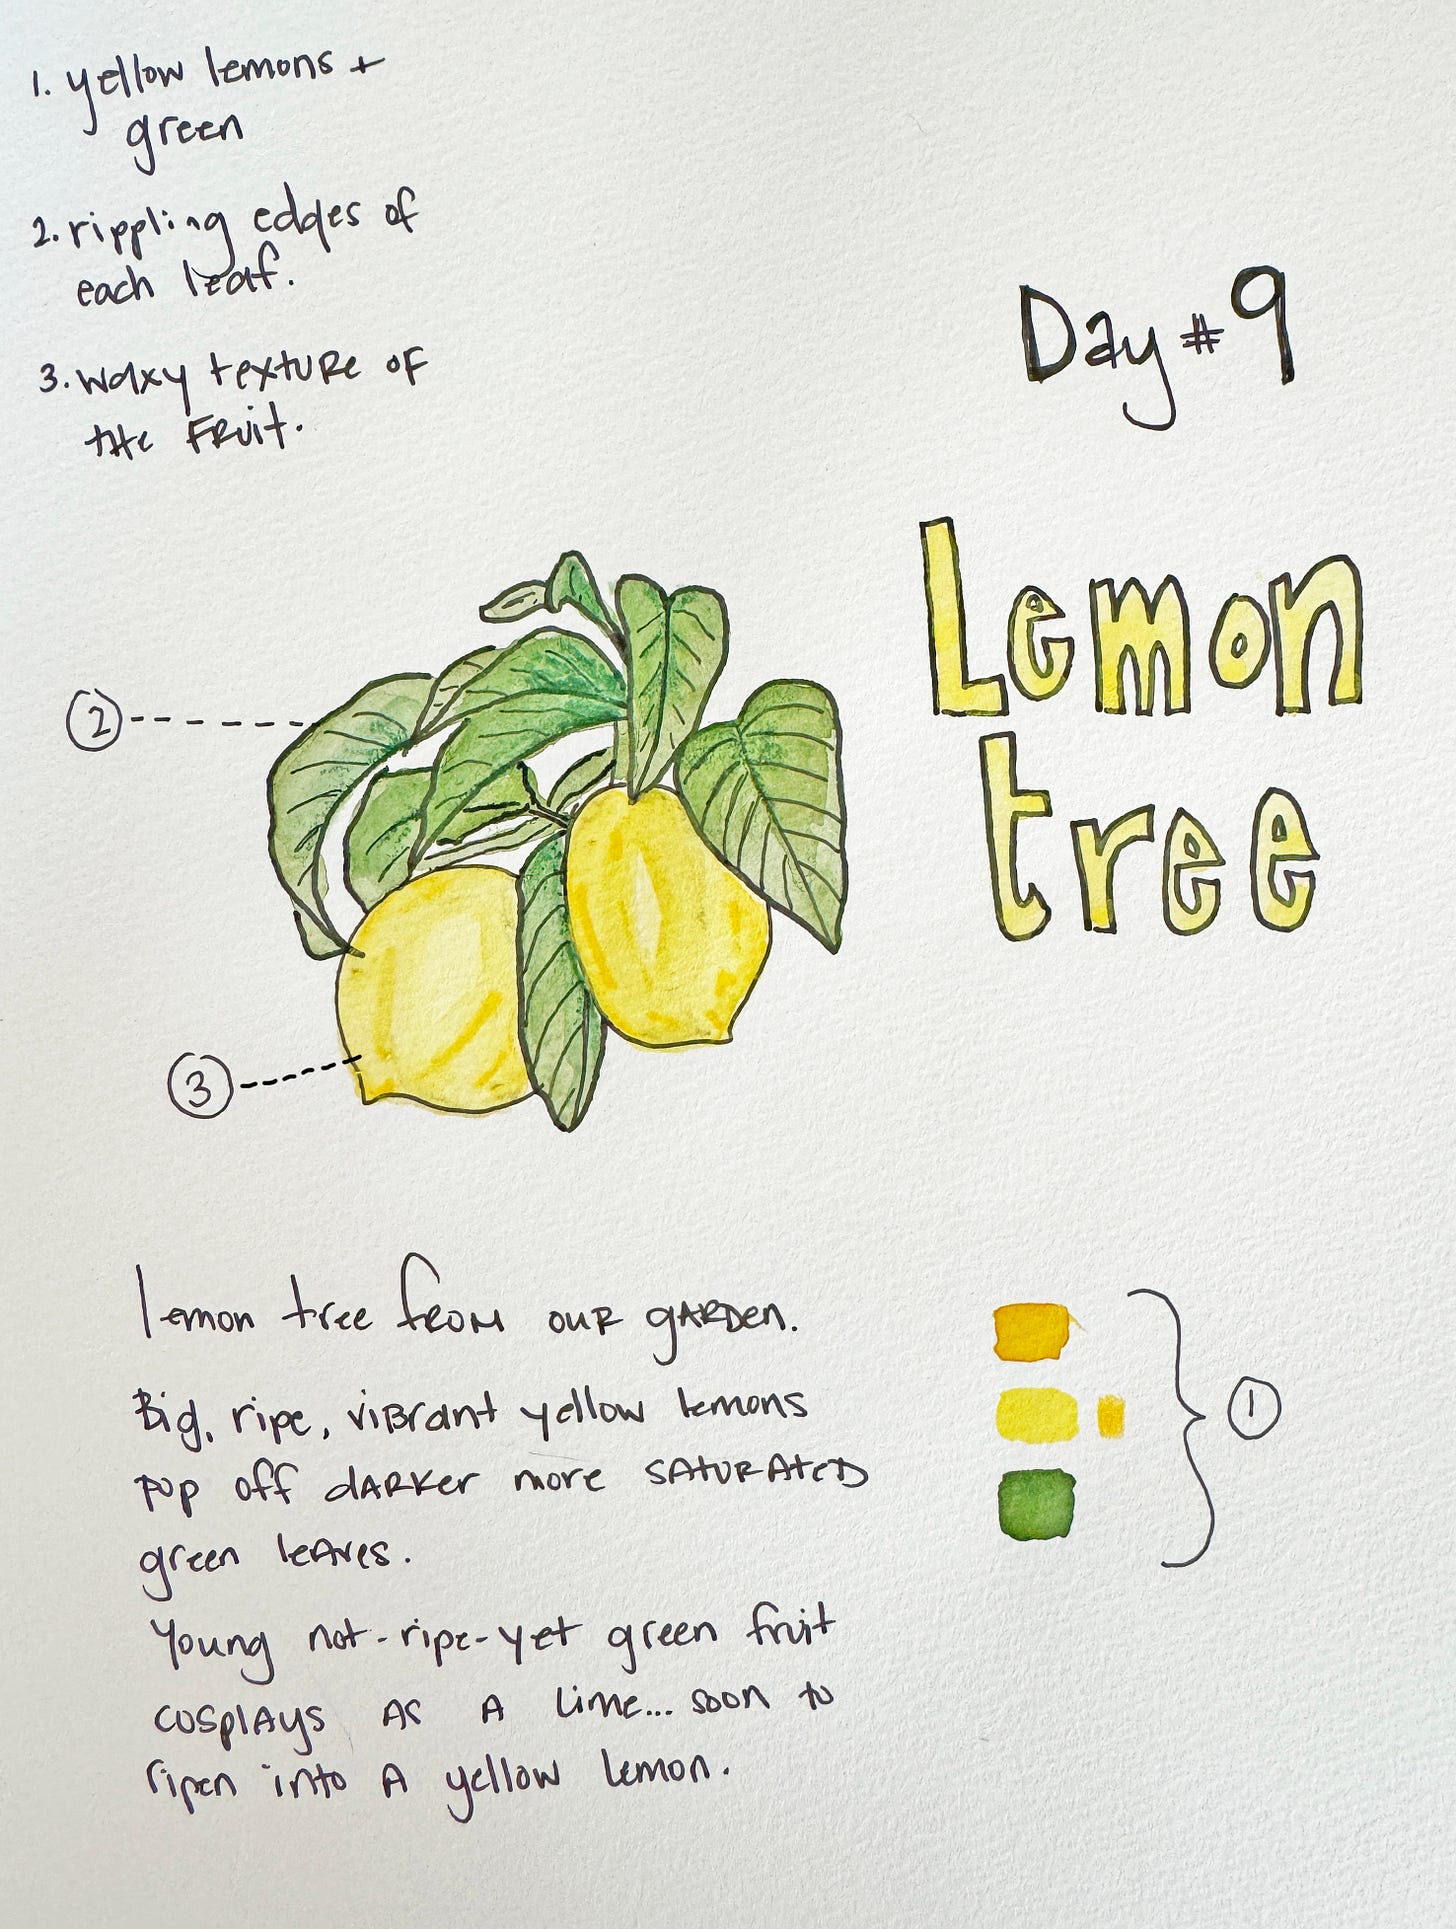 1. yellow lemons +
green
2. rippling edges of
each leaf.
3. waxy texture of
the fruit.
Day #9
Lemon
tree
2
3
lemon tree from our garden.
Big, ripe, vibrant yellow lemons
pop off darker more saturated
green leaves.
Young not-ripe-yet green fruit
cosplays as a lime... soon to
ripen into a yellow lemon.
1